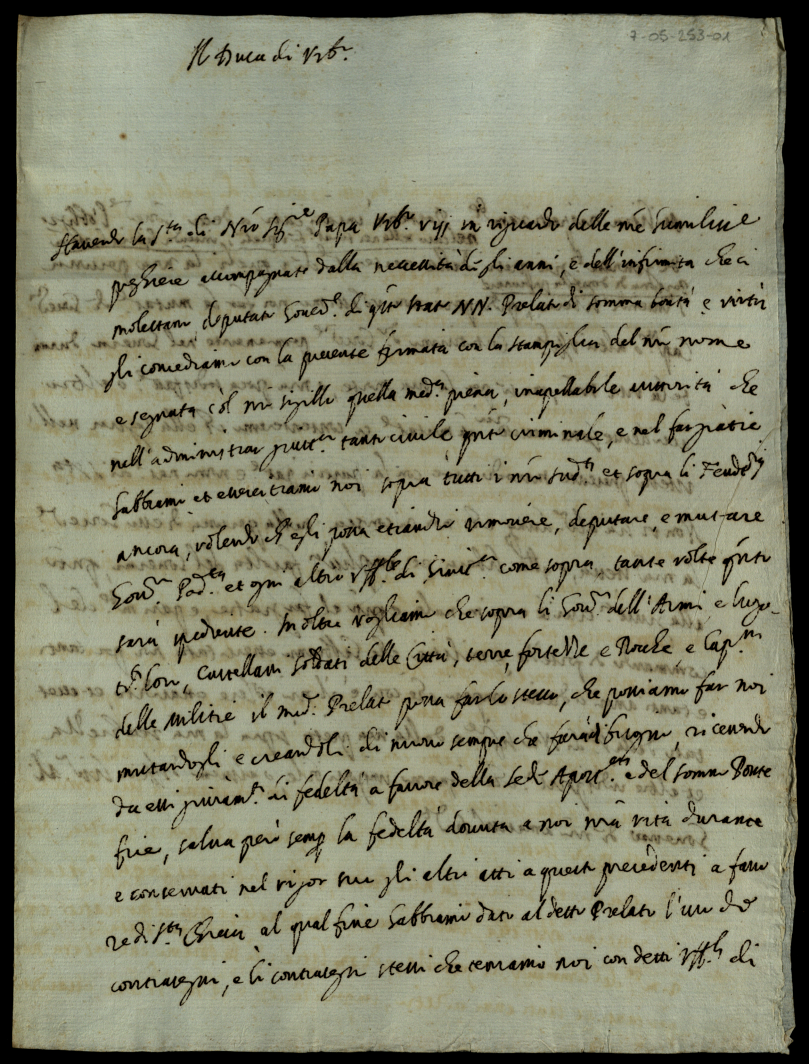 7-05-253-01
Il Duca di Urb.o
Havendo la S.tà di N̄ro Sig.re Papa Urb.o viij in riguardo delle n̄re humilis.e
preghiere accompagnate dalla necessità de gli anni, e dell'infirmità che ci
molestano deputato Gover.re di q̄sto stato NN. Prelato di somma bontà e virtù
gli concediamo con la presente firmata con la stampiglia del n̄ro nome
e segnata col n̄ro sigillo quella med.a piena, inapellabile autorità che
nell'administrar giust.a tanto civile q̄nto criminale, e nel far gratie
habbiamo et esercitiamo noi sopra tutti i n̄ri sud.ti et sopra li Feudat.ij
ancora, volendo ch'egli possa etiandio rimovere, deputare, e mutare
Gov.ri Pod.tà et ogni altro Uff.le di Giust.a come sopra, tante volte q̄nto
sarà spediente. Inoltre vogliamo che sopra li Gov.ri dell'Armi, e luogo-
t.ti loro, Castellani soldati delle Città, terre, fortezze e Rocche, e Cap.ni
delle militie il med.o Prelato possa far lo stesso, che possiamo far noi
mutandogli e creandoli di nuovo sempre che farà di bisogno, ricevendo
da essi giuram.to di fedeltà a favore della Sede Apost.ca e del sommo Ponte
fice, salva però semp̄ la fedeltà dovuta a noi n̄ra vita durante
e conservati nel vigor suo gli altri atti a questo precedenti a favo
re di S.ta Chiesa al qual fine habbiamo dato al detto Prelato l'uso de
contrasegni, e li contrasegni stessi che teniamo noi con detti Uff.li di